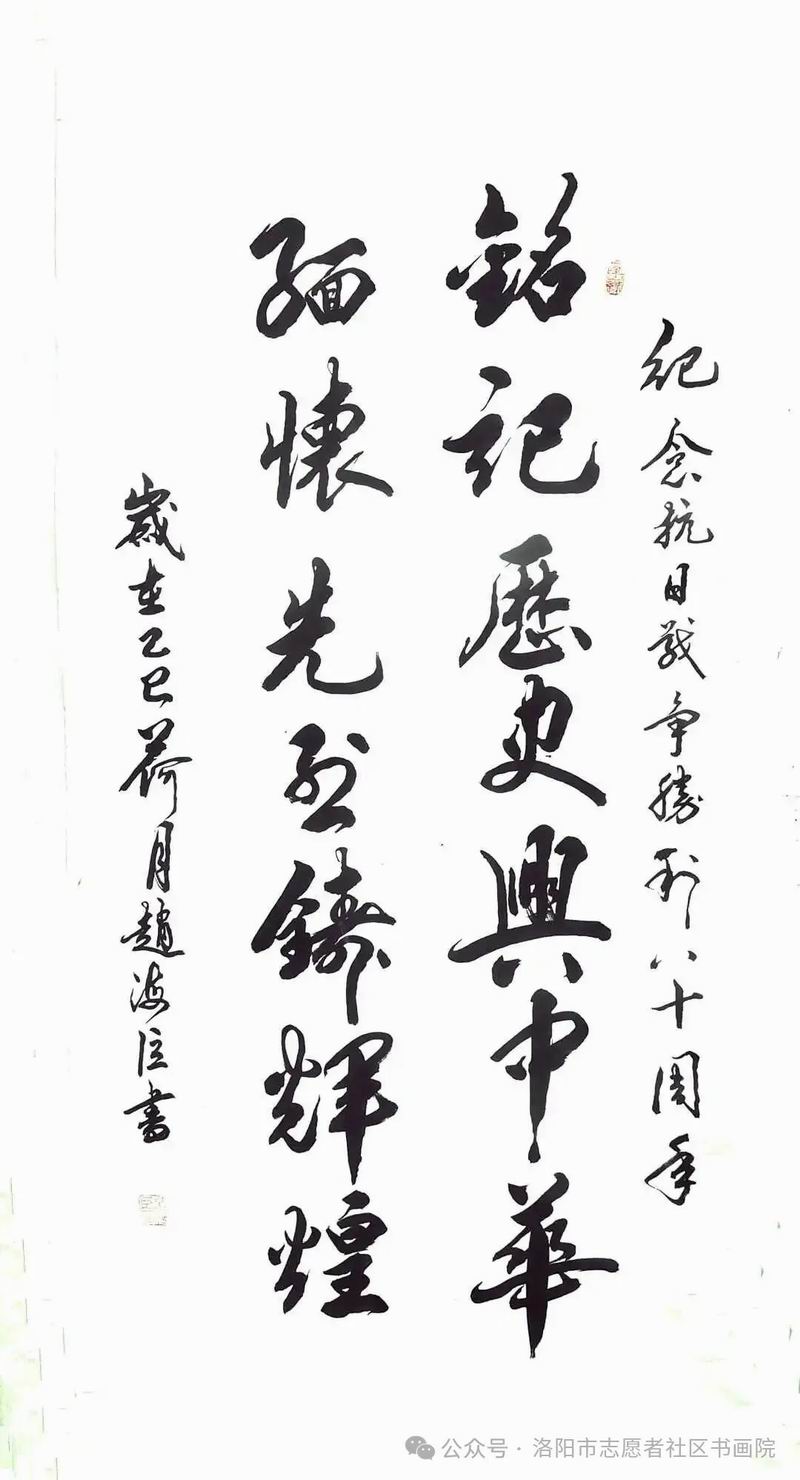 紀念抗日戰争勝利八十周年
銘記歷史興中華
緬懷先烈鑄輝煌
歲在乙巳荷月趙海位書
公众号·洛阳市志愿者社区书画院